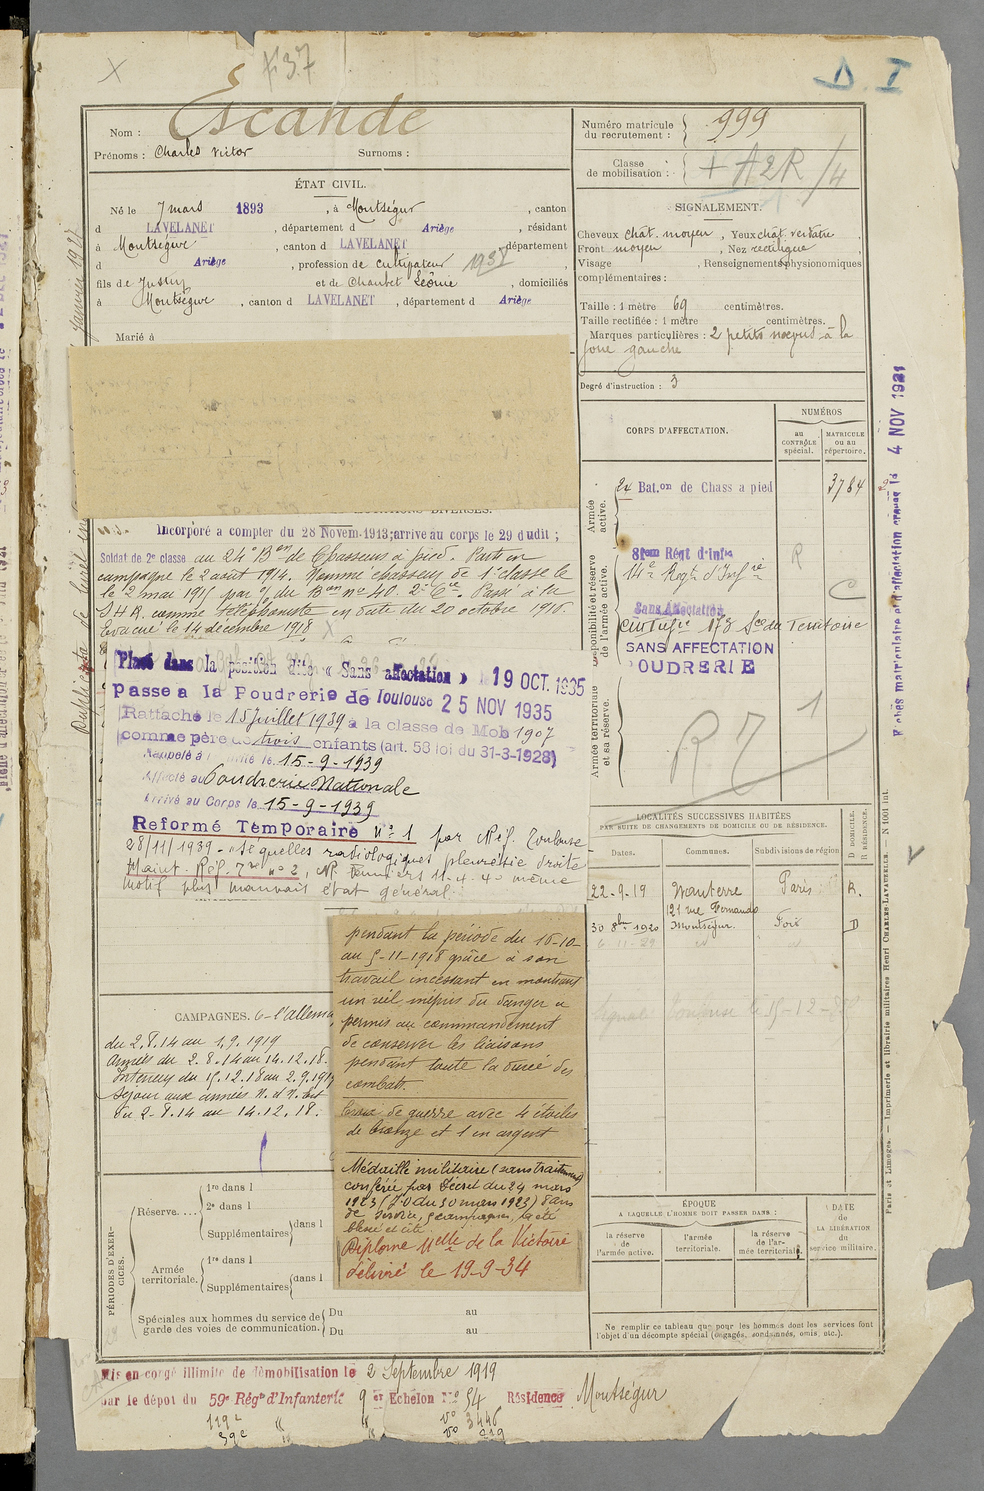 X
D. I
Nom : Escande
Prénoms : Charles Victor Surnoms :
Numéro matricule du recrutement : 999
Classe de mobilisation : + A2R /4
ÉTAT CIVIL.
Né le 7 mars 1893, à Montségur, canton
d LAVELANET, département d Ariège, résidant
à Montségur, canton d LAVELANET, département
d Ariège, profession de cultivateur
fils de Justin et de Chaubet Léonie, domiciliés
à Montségur, canton d LAVELANET, département d Ariège
Marié à
SIGNALEMENT.
Cheveux chat. moyen, Yeux chat. verdatre,
Front moyen, Nez rectiligne,
Visage , Renseignements physionomiques
complémentaires :
Taille : 1 mètre 69 centimètres.
Taille rectifiée : 1 mètre centimètres.
Marques particulières : 2 petits noevus à la
joue gauche
Degré d'instruction : 3
CORPS D'AFFECTATION.
NUMÉROS
au CONTRÔLE spécial.
MATRICULE ou au répertoire.
Armée active.
24 Bat.on de Chass a pied 3784
Disponibilité et réserve de l'armée active.
14e Regt d'Infrie
Sans Affectation
SANS AFFECTATION
POUDRERIE
Armée territoriale et sa réserve.
R
C
Incorporé a compter du 28 Novem. 1913; arrive au corps le 29 dudit ;
Soldat de 2e classe au 24e Bon de Chasseurs à pied. Parti en
campagne le 2 août 1914. Nommé chasseur de 1e classe le
le 2 mai 1915 par o/ du Bon no 40. 2e Cie. Passé à la
S H R. comme téléphoniste en date du 20 octobre 1916.
Evacué le 14 décembre 1918
Placé dans la position dite « Sans affectation » le 19 OCT. 1935
passe a la Poudrerie de Toulouse 25 NOV 1935
Rattaché le 15 juillet 1939 à la classe de Mob 1907
comme père de trois enfants (art. 58 loi du 31-3-1928)
Rappelé à l'activité le 15-9-1939
Affecté au Poudrerie Nationale
Arrivé au Corps le 15-9-1939
Reformé Temporaire n°1 par Réf. Toulouse
28/11/1939 - Séquelles radiologiques pleuresie droite
Maint. Réf. Tre n° 2, 11-4-40 même
motif plus mauvais état général.
pendant la période du 16-10
au 5-11-1918 grâce à son
travail incessant en montrant
un réel mépris du danger a
permis au commandement
de conserver les liaisons
pendant toute la durée des
combats
Croix de guerre avec 4 étoiles
de bronze et 1 en argent
Médaille militaire (sans traitement)
conférée par Décret du 24 mars
1923 (J.O du 30 mars 1923) 8 ans
de service, 5 campagnes, a été
blessé et cité.
Diplome Melle de la Victoire
délivré le 19-9-34
CAMPAGNES. C- l'allema
du 2.8.14 au 1.9.1919
Armées du 2.8.14 au 14.12.18.
Intérieur du 15.12.18 au 2.9.1919
Séjour aux armées
du 2-8.14 au 14.12.18.
LOCALITÉS SUCCESSIVES HABITÉES
PAR SUITE DE CHANGEMENTS DE DOMICILE OU DE RÉSIDENCE.
Dates. Communes. Subdivisions de région D DOMICILE. R RÉSIDENCE.
22-9-19 Nanterre Paris R.
121 rue Fernando
30 8bre 1920 Montségur. Foix D
PÉRIODES D'EXERCICES.
Réserve....
1re dans l
2e dans l
Supplémentaires dans l
Armée territoriale.
1re dans l
Supplémentaires dans l
Spéciales aux hommes du service de garde des voies de communication.
Du au
Du au
ÉPOQUE
A LAQUELLE L'HOMME DOIT PASSER DANS :
la réserve de l'armée active.
l'armée territoriale.
la réserve de l'armée territoriale.
DATE de LA LIBÉRATION du service militaire.
Ne remplir ce tableau que pour les hommes dont les services font
l'objet d'un décompte spécial (engagés, condamnés, omis, etc.).
Mis en congé illimité de démobilisation le 2 Septembre 1919
par le dépôt du 59e Régt d'Infanterie 9 er Echelon No 54 Résidence Montségur
Paris et Limoges. — Imprimerie et librairie militaires Henri CHARLES-LAVAUZELLE. — N 1001 int.
4 NOV 1921